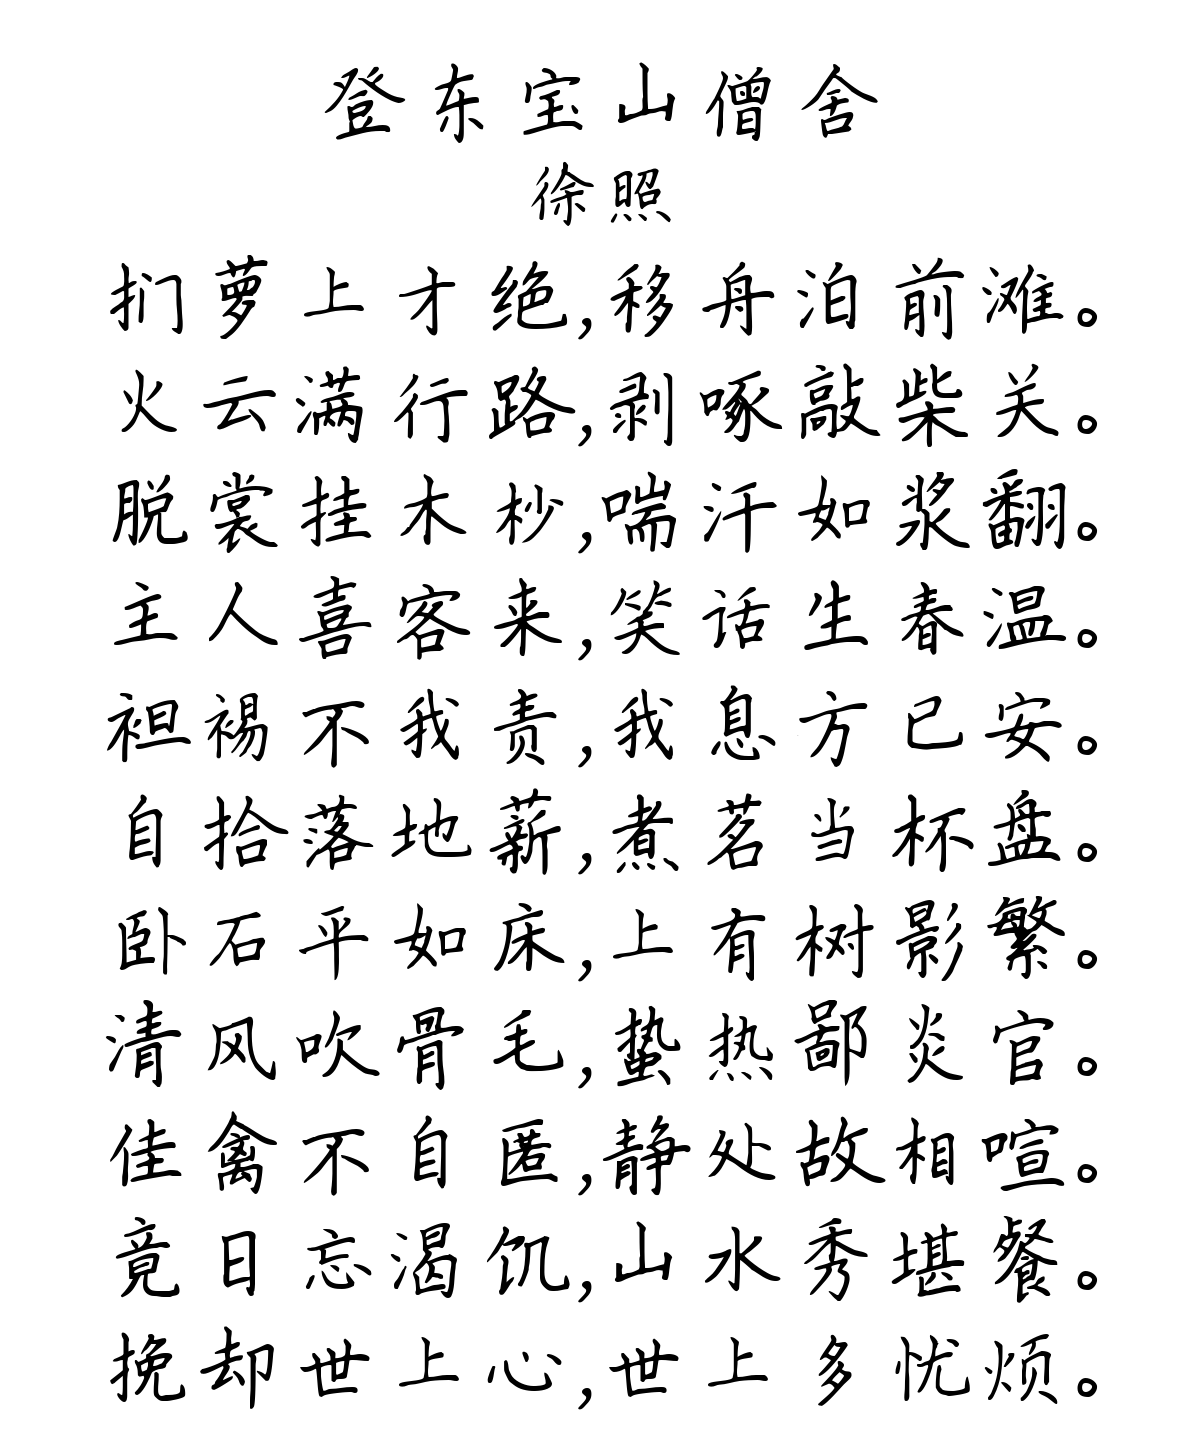 登东宝山僧舍
徐照
扪萝上才绝,移舟泊前滩。
火云满行路,剥啄敲柴关。
脱裳挂木杪,喘汗如浆翻。
主人喜客来,笑话生春温。
袒裼不我责,我息方已安。
自拾落地薪,煮茗当杯盘。
卧石平如床,上有树影繁。
清风吹骨毛,蛰热鄙炎官。
佳禽不自匿,静处故相喧。
竟日忘渴饥,山水秀堪餐。
挽却世上心,世上多忧烦。